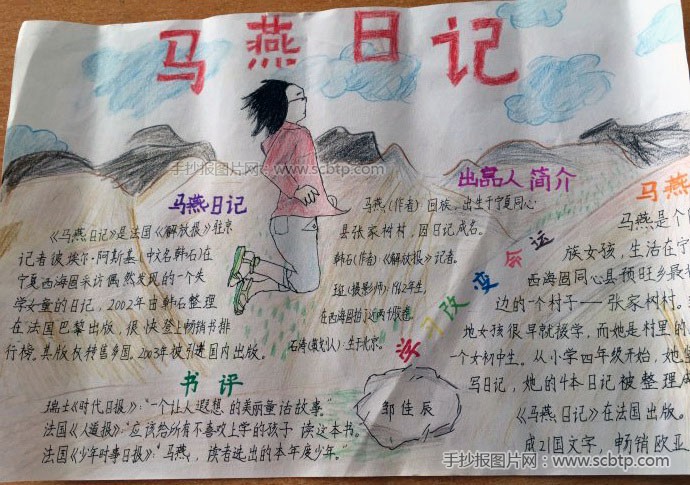 马燕日记
手抄报图片网:www.scbtp.com
马燕日记
《马燕日记》是法国《解放报》驻京
记者彼埃尔·阿斯基(中文名韩石)在
宁夏西海固采访偶然发现的一个失
学女童的日记,2002年由韩石整理
在法国巴黎出版,很快登上畅销书排
行榜。其版权转售多国,2003年被引进国内出版。
书评
瑞士《时代日报》:“一个让人遐想的美丽童话故事。”
法国《人道报》:“应该给所有不喜欢上学的孩子读这本书。
法国《少年时事日报》:“马燕,读者选出的本年度少年。”
出品人简介
马燕(作者)回族,出生宁夏同心
县张家树村,因日记成名。
韩石(作者):《解放报》记者。
(摄影师):1962年生,
在西海固拍了近两千张卷
石涛(策划人):生于北京。
学习改变命运
邹佳辰
马燕
马燕是个
族女孩,生活在宁
西海固同心县预旺乡最
边的一个村子——张家树村。
地女孩很早就辍学,而她是村里的
一个女初中生。从小学四年级开始,她
写日记,她的4本日记被整理成
《马燕日记》在法国出版。
成21国文字,畅销欧亚
手抄报图片网:www.scbtp.com